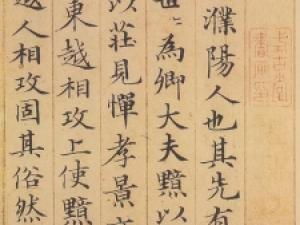 濮陽人也其先有
〻為卿大夫黯以
以莊見憚孝景
東越相攻上使黯
越人相攻固其俗然